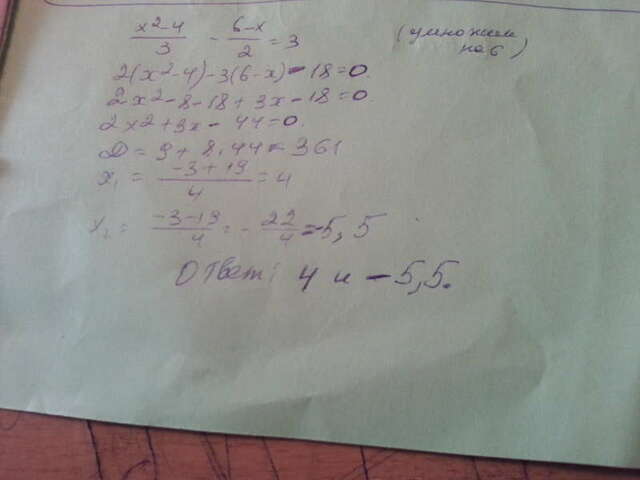 x²-4/3 - 6-x/2 = 3 (умножим на 6)
2(x²-4)-3(6-x)-18=0.
2x²-8-18+3x-18=0.
2x²+3x-44=0.
D=9+8·44=361
x₁ = -3+19/4 = 4
x₂ = -3-19/4 = -22/4 = -5,5
Ответ: 4 и -5,5.